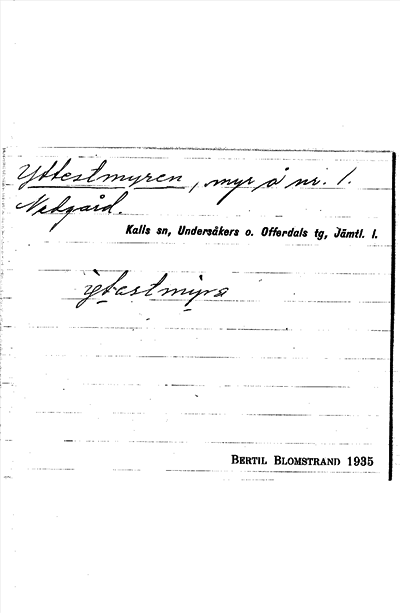 Yttestmyren, myr å nr. 1.
Nedgård.
Kalls sn, Undersåkers o. Offerdals tg, Jämtl. l.
BERTIL BLOMSTRAND 1935